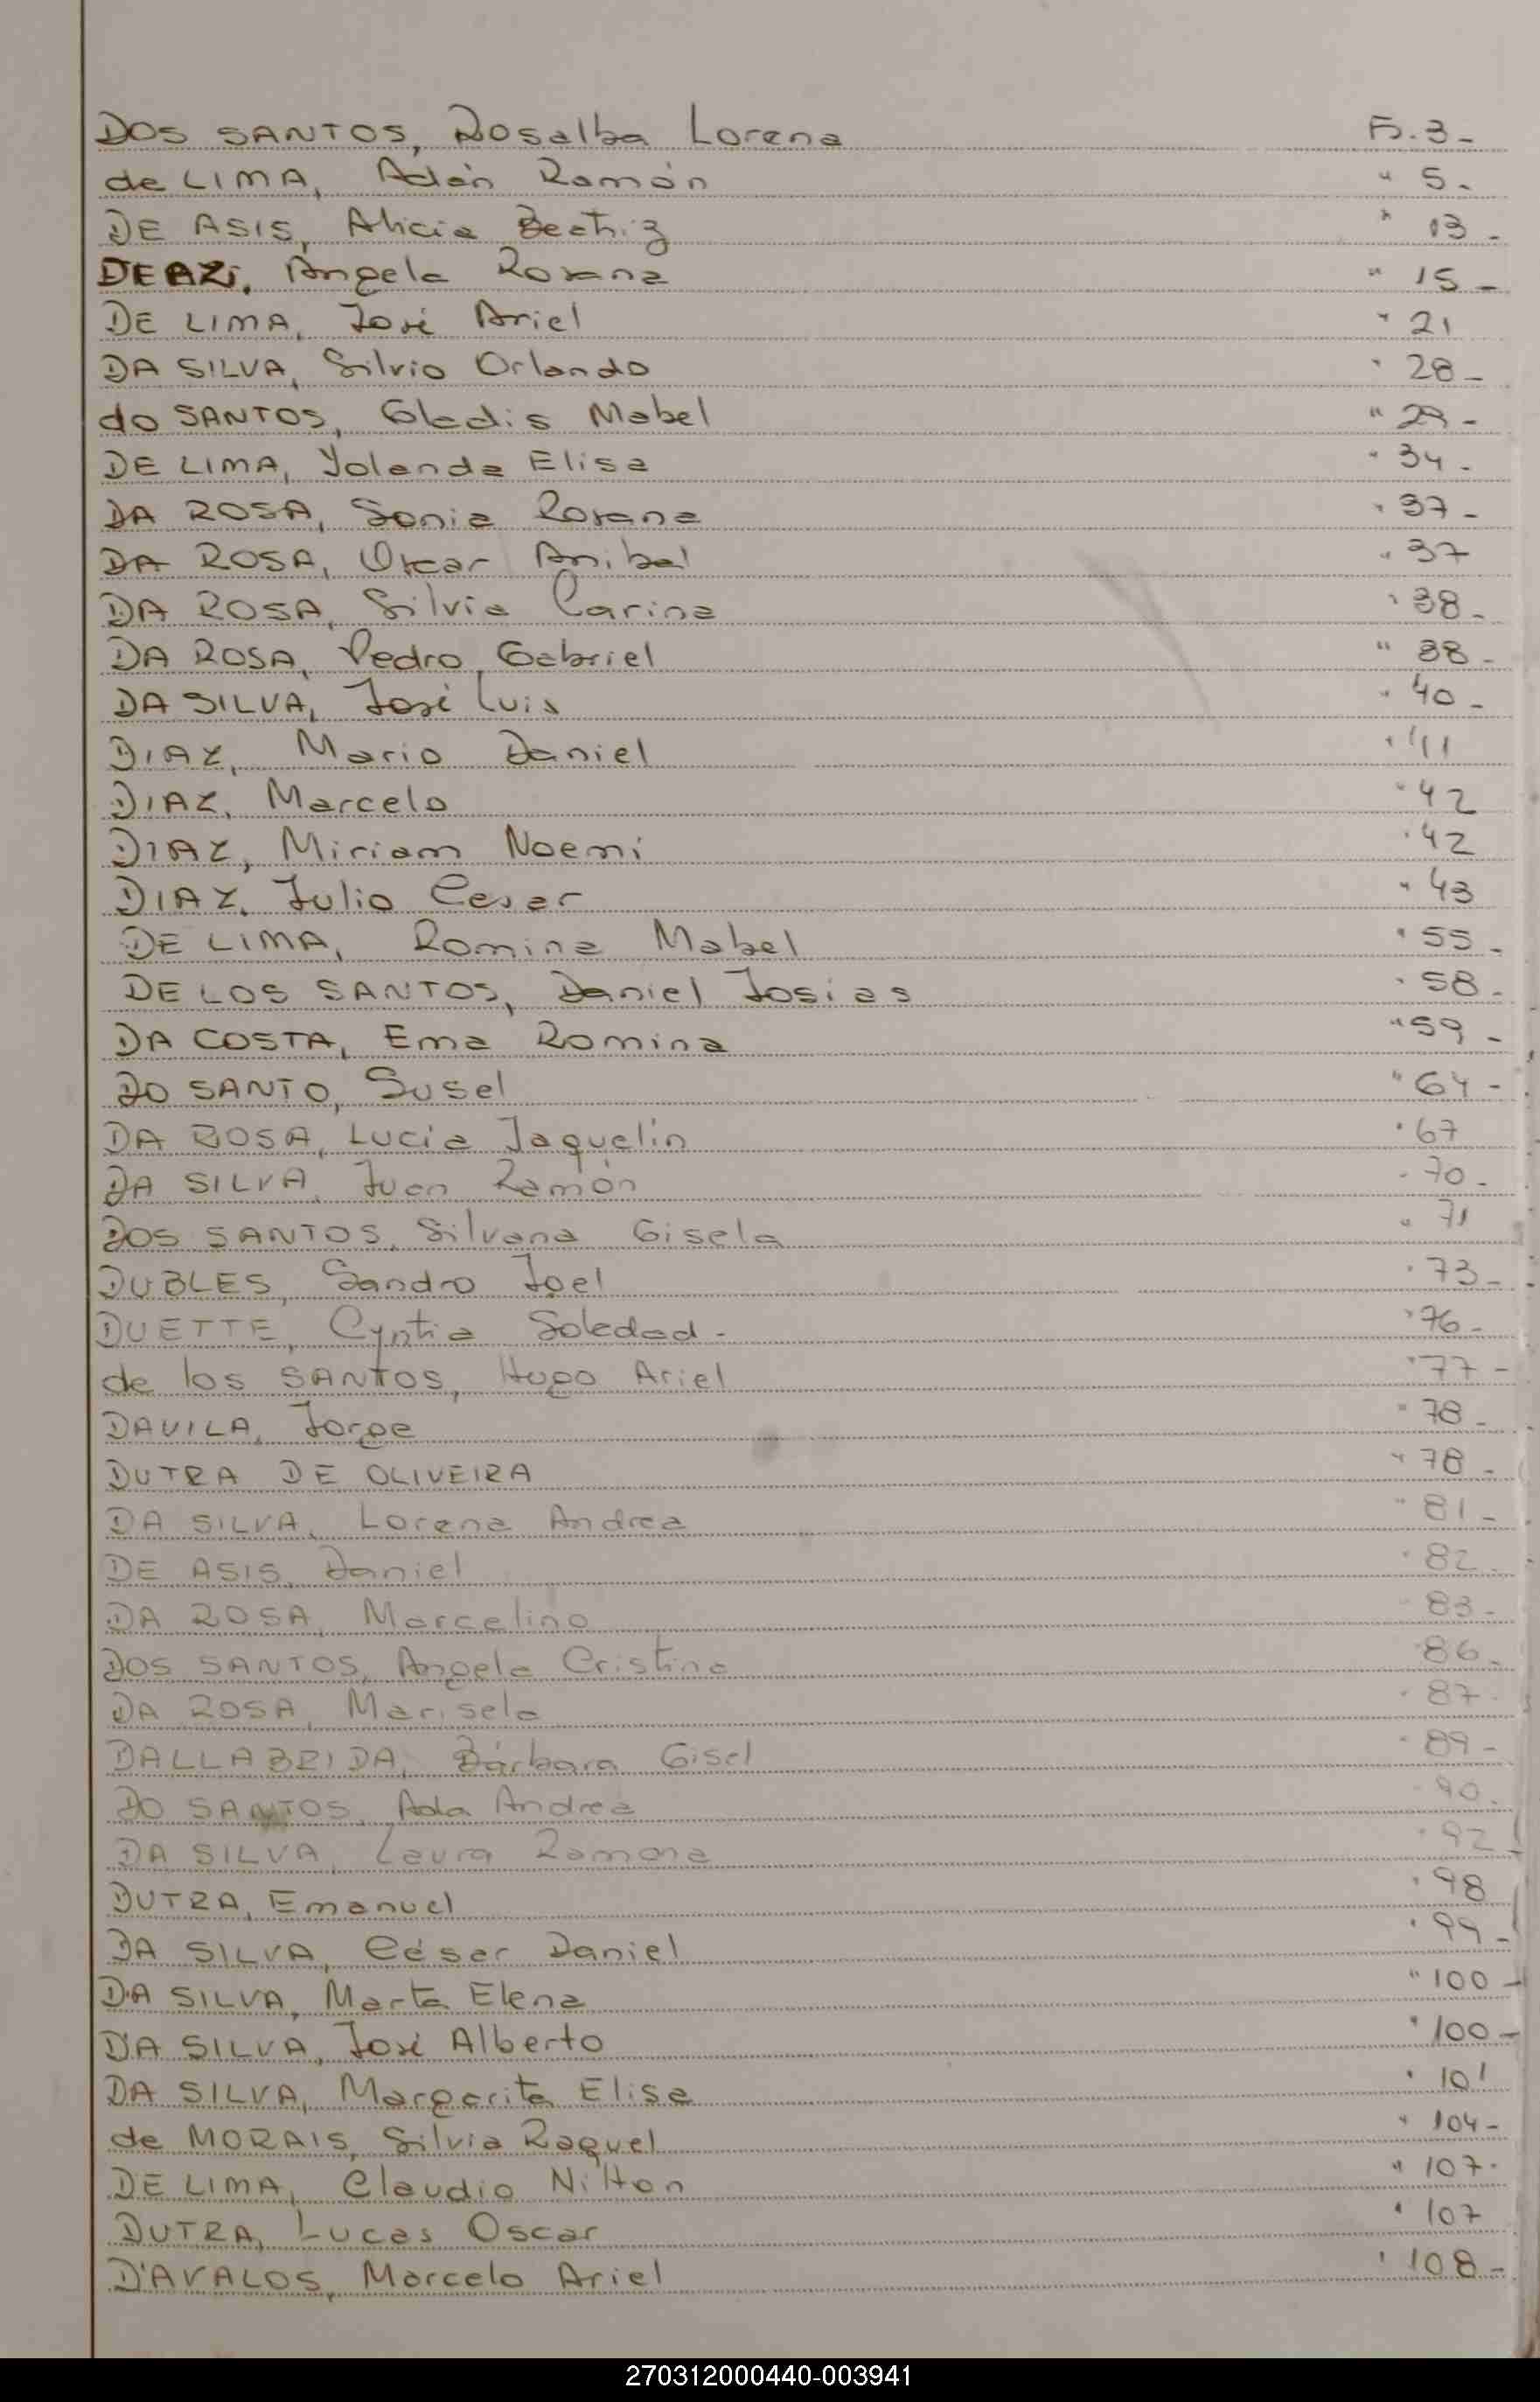 DOS SANTOS, Rosalba Lorena Fs. 3-
de LIMA, Adán Ramón " 5-
DE ASIS, Alicia Beatriz " 13-
DEAZI, Angela Rosana " 15-
DE LIMA, José Ariel " 21
DA SILVA, Silvio Orlando " 28-
do SANTOS, Gladis Mabel " 29-
DE LIMA, Yolanda Elisa " 34-
DA ROSA, Sonia Rosana " 37-
DA ROSA, Oscar Anibal " 37
DA ROSA, Silvia Carina " 38-
DA ROSA, Pedro Gabriel " 38-
DA SILVA, José Luis " 40-
DIAZ, Mario Daniel " 41
DIAZ, Marcelo " 42
DIAZ, Miriam Noemi " 42
DIAZ, Julio Cesar " 43
DE LIMA, Romina Mabel " 55-
DE LOS SANTOS, Daniel Josias " 58-
DA COSTA, Ema Romina " 59-
DO SANTO, Susel " 64-
DA ROSA, Lucia Jaquelin " 67
DA SILVA, Juan Ramón " 70-
DOS SANTOS, Silvana Gisela " 71
DUBLES, Sandro Joel " 73-
DUETTE, Cyntia Soledad- " 76-
de los SANTOS, Hugo Ariel " 77-
DAVILA, Jorge " 78-
DUTRA DE OLIVEIRA " 78-
DA SILVA, Lorena Andrea " 81-
DE ASIS, Daniel " 82
DA ROSA, Marcelino " 83-
DOS SANTOS, Angela Cristina " 86-
DA ROSA, Marisela " 87-
DALLABRIDA, Bárbara Gisel " 89-
DO SANTOS, Ada Andrea " 90-
DA SILVA, Laura Ramona " 92-
DUTRA, Emanuel " 98
DA SILVA, César Daniel " 99-
DA SILVA, Marta Elena " 100-
DA SILVA, José Alberto " 100-
DA SILVA, Margarita Elisa " 101
de MORAIS, Silvia Raquel " 104-
DE LIMA, Claudio Nilton " 107-
DUTRA, Lucas Oscar " 107
D'AVALOS, Marcelo Ariel " 108-
270312000440-003941